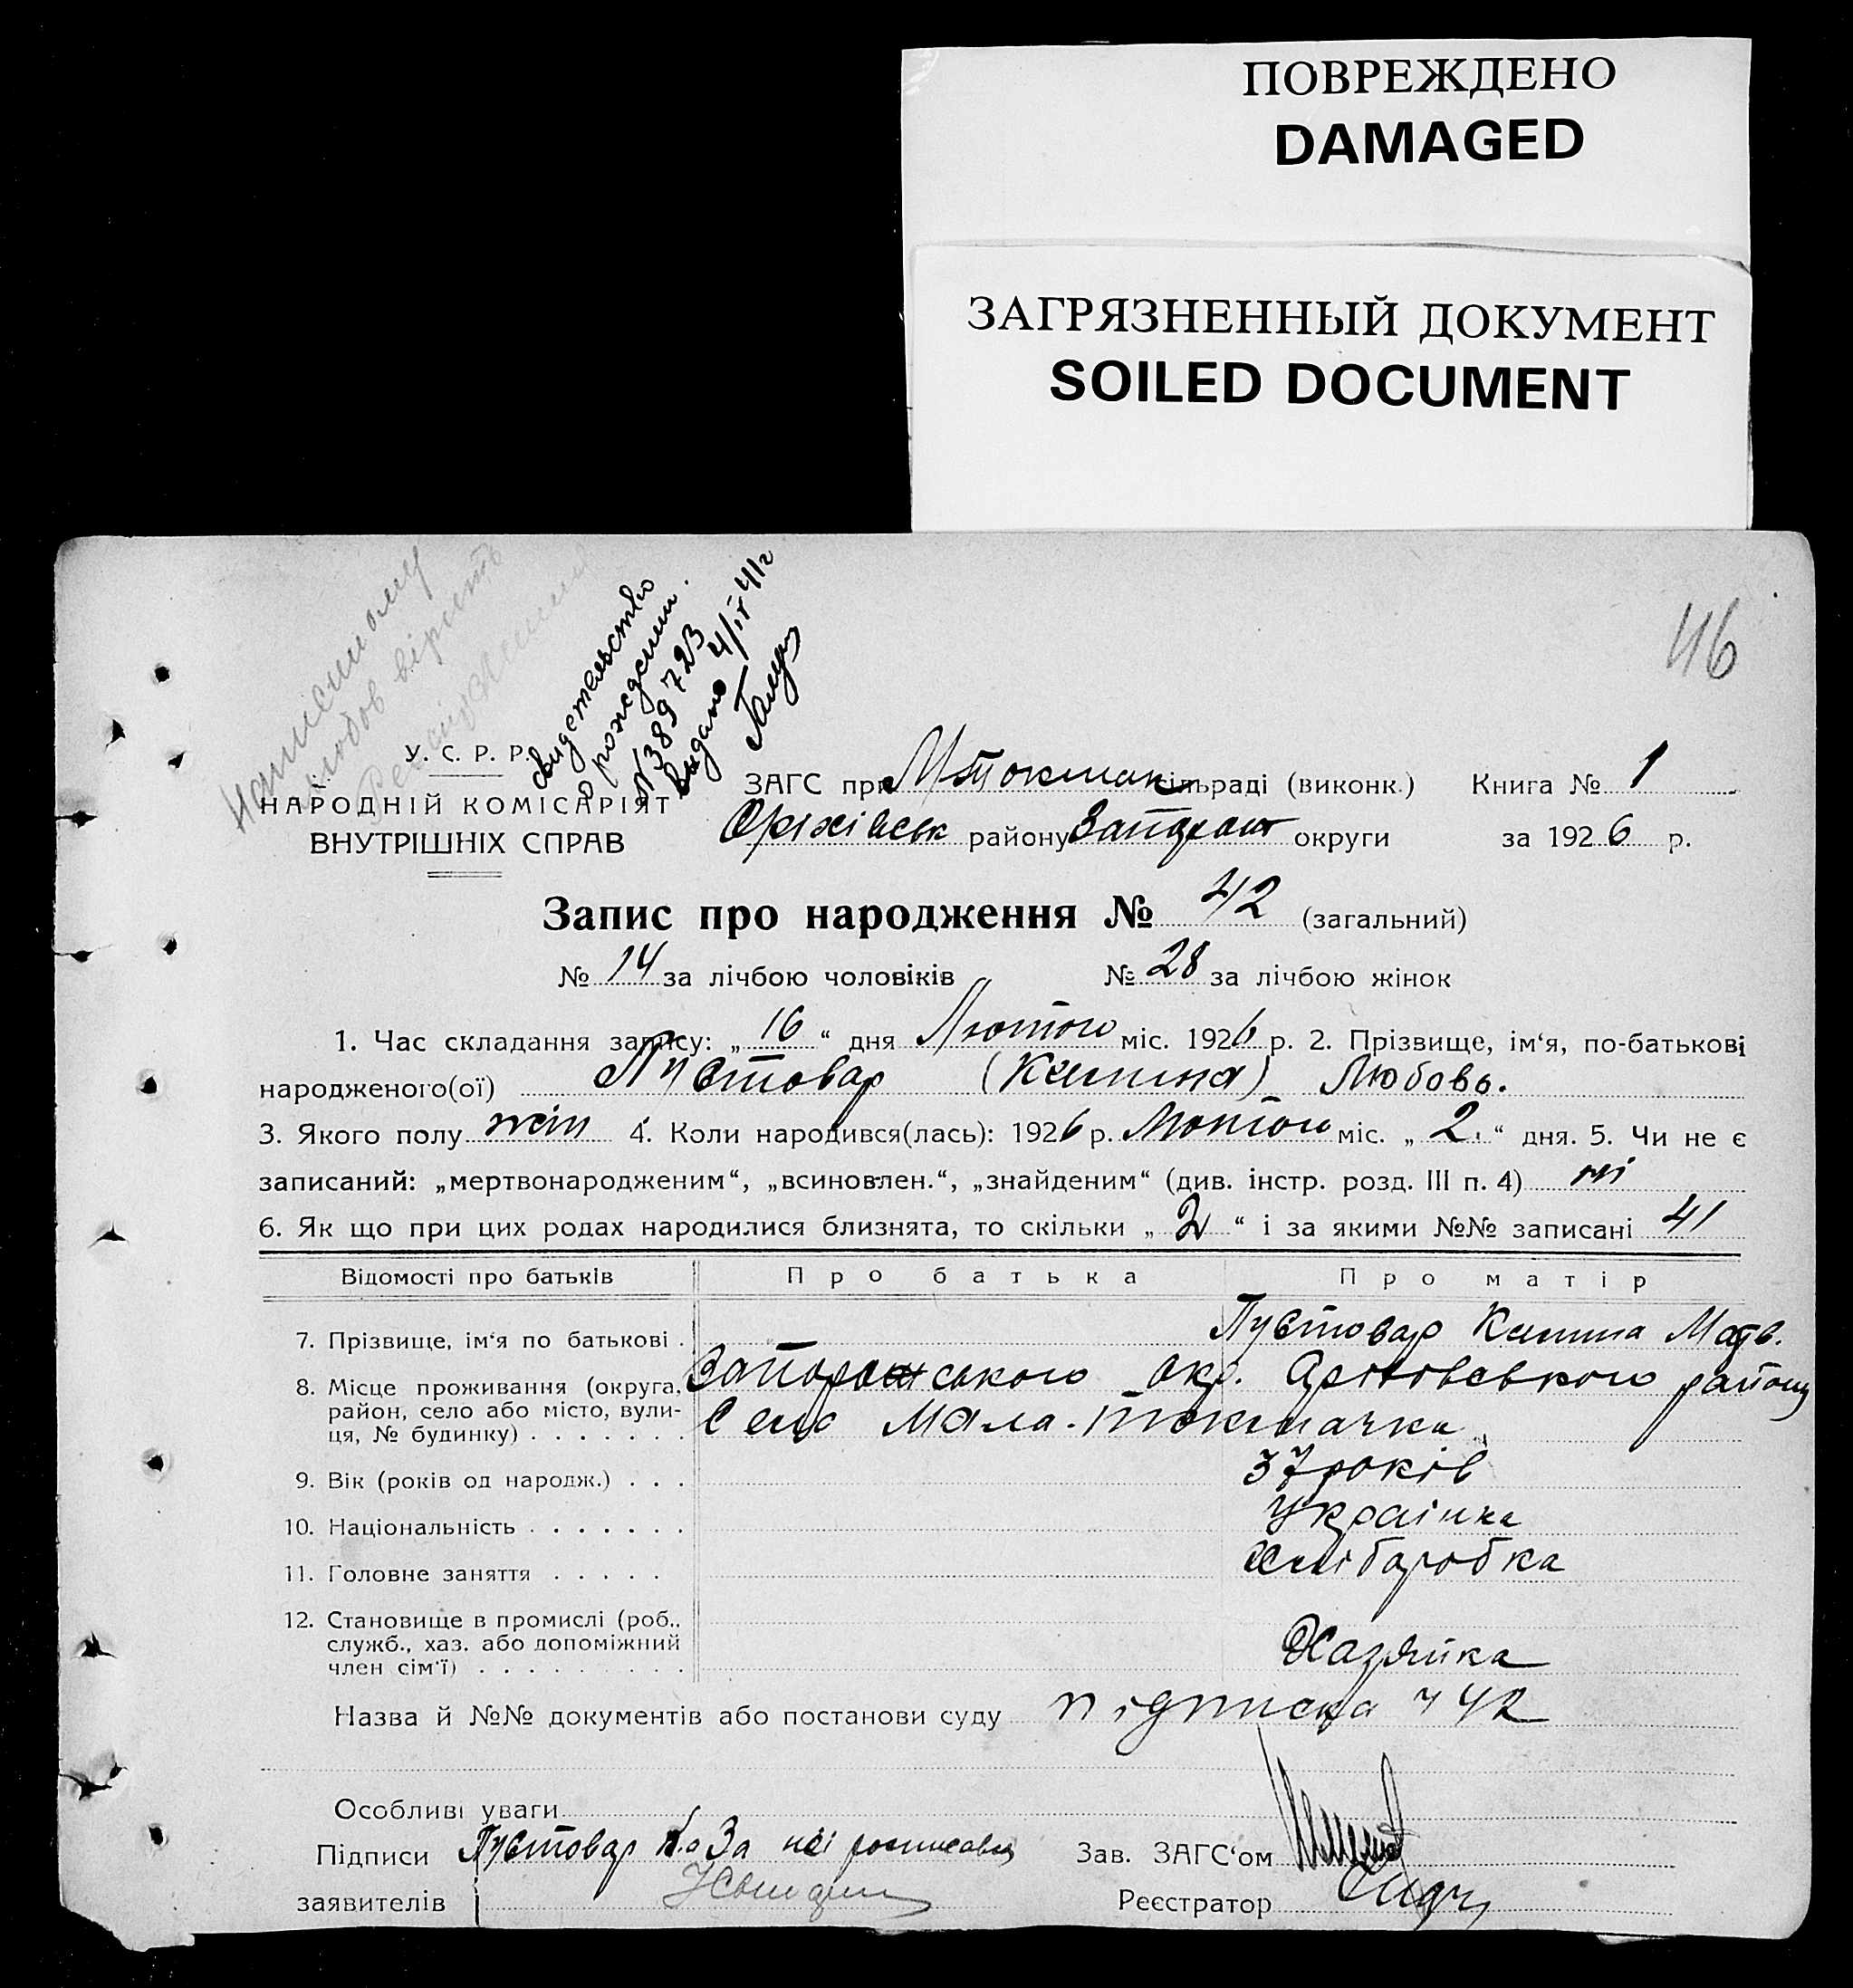 ПОВРЕЖДЕНО
DAMAGED
ЗАГРЯЗНЕННЫЙ ДОКУМЕНТ
SOILED DOCUMENT
46
свидетельство
о рождении.
N 389723
видано 4/IV 41 г
У. С. Р. Р.
НАРОДНІЙ КОМІСАРІЯТ
ВНУТРІШНІХ СПРАВ
ЗАГС при М-Токмач сільраді (виконк.) Книга № 1
Оріхівськ району Запорож округи за 1926 р.
Запис про народження № 42 (загальний)
№ 14 за лічбою чоловіків № 28 за лічбою жінок
1. Час складання запису: „ 16 “ дня Лютого міс. 1926 р. 2. Прізвище, ім‘я, по-батькові
народженого(ої) Пустовар (Килина) Любовь.
3. Якого полу жін 4. Коли народився(лась): 1926 р. Лютого міс. „ 2. “ дня. 5. Чи не є
записаний: „мертвонародженим“, „всиновлен.“, „знайденим“ (див. інстр. розд. III п. 4) ні
6. Як що при цих родах народилися близнята, то скільки „ 2 “ і за якими №№ записані 41
Відомості про батьків Про батька Про матір
7. Прізвище, ім‘я по батькові . Пустовар Килина Матв.
8. Місце проживання (округа, район, село або місто, вули-
ця, № будинку) . . . . . . .
Запорожського окр. Оріхівського району
Село Мала-Токмачка
9. Вік (років од народж.) . . . 37 років
10. Національність . . . . . . . Українка
11. Головне заняття . . . . . Хліборобка
12. Становище в промислі (роб.,
служб., хаз. або допоміжний
член сім‘ї) . . . . . . . . . Хазяйка
Назва й №№ документів або постанови суду підписка ч 42
Особливі уваги
Підписи Пустовар За неі росписавсь
заявителів
Зав. ЗАГС‘ом
Реєстратор